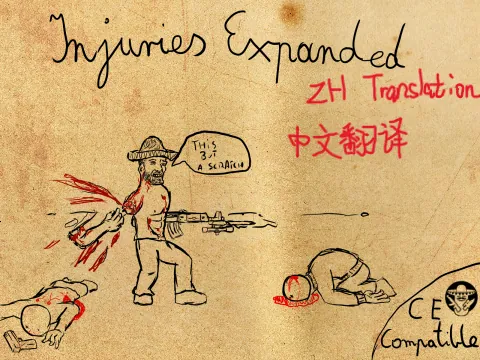 Injuries Expanded
ZH Translation
中文翻译
THIS
BUT
A SCRATCH
CE
Compatible